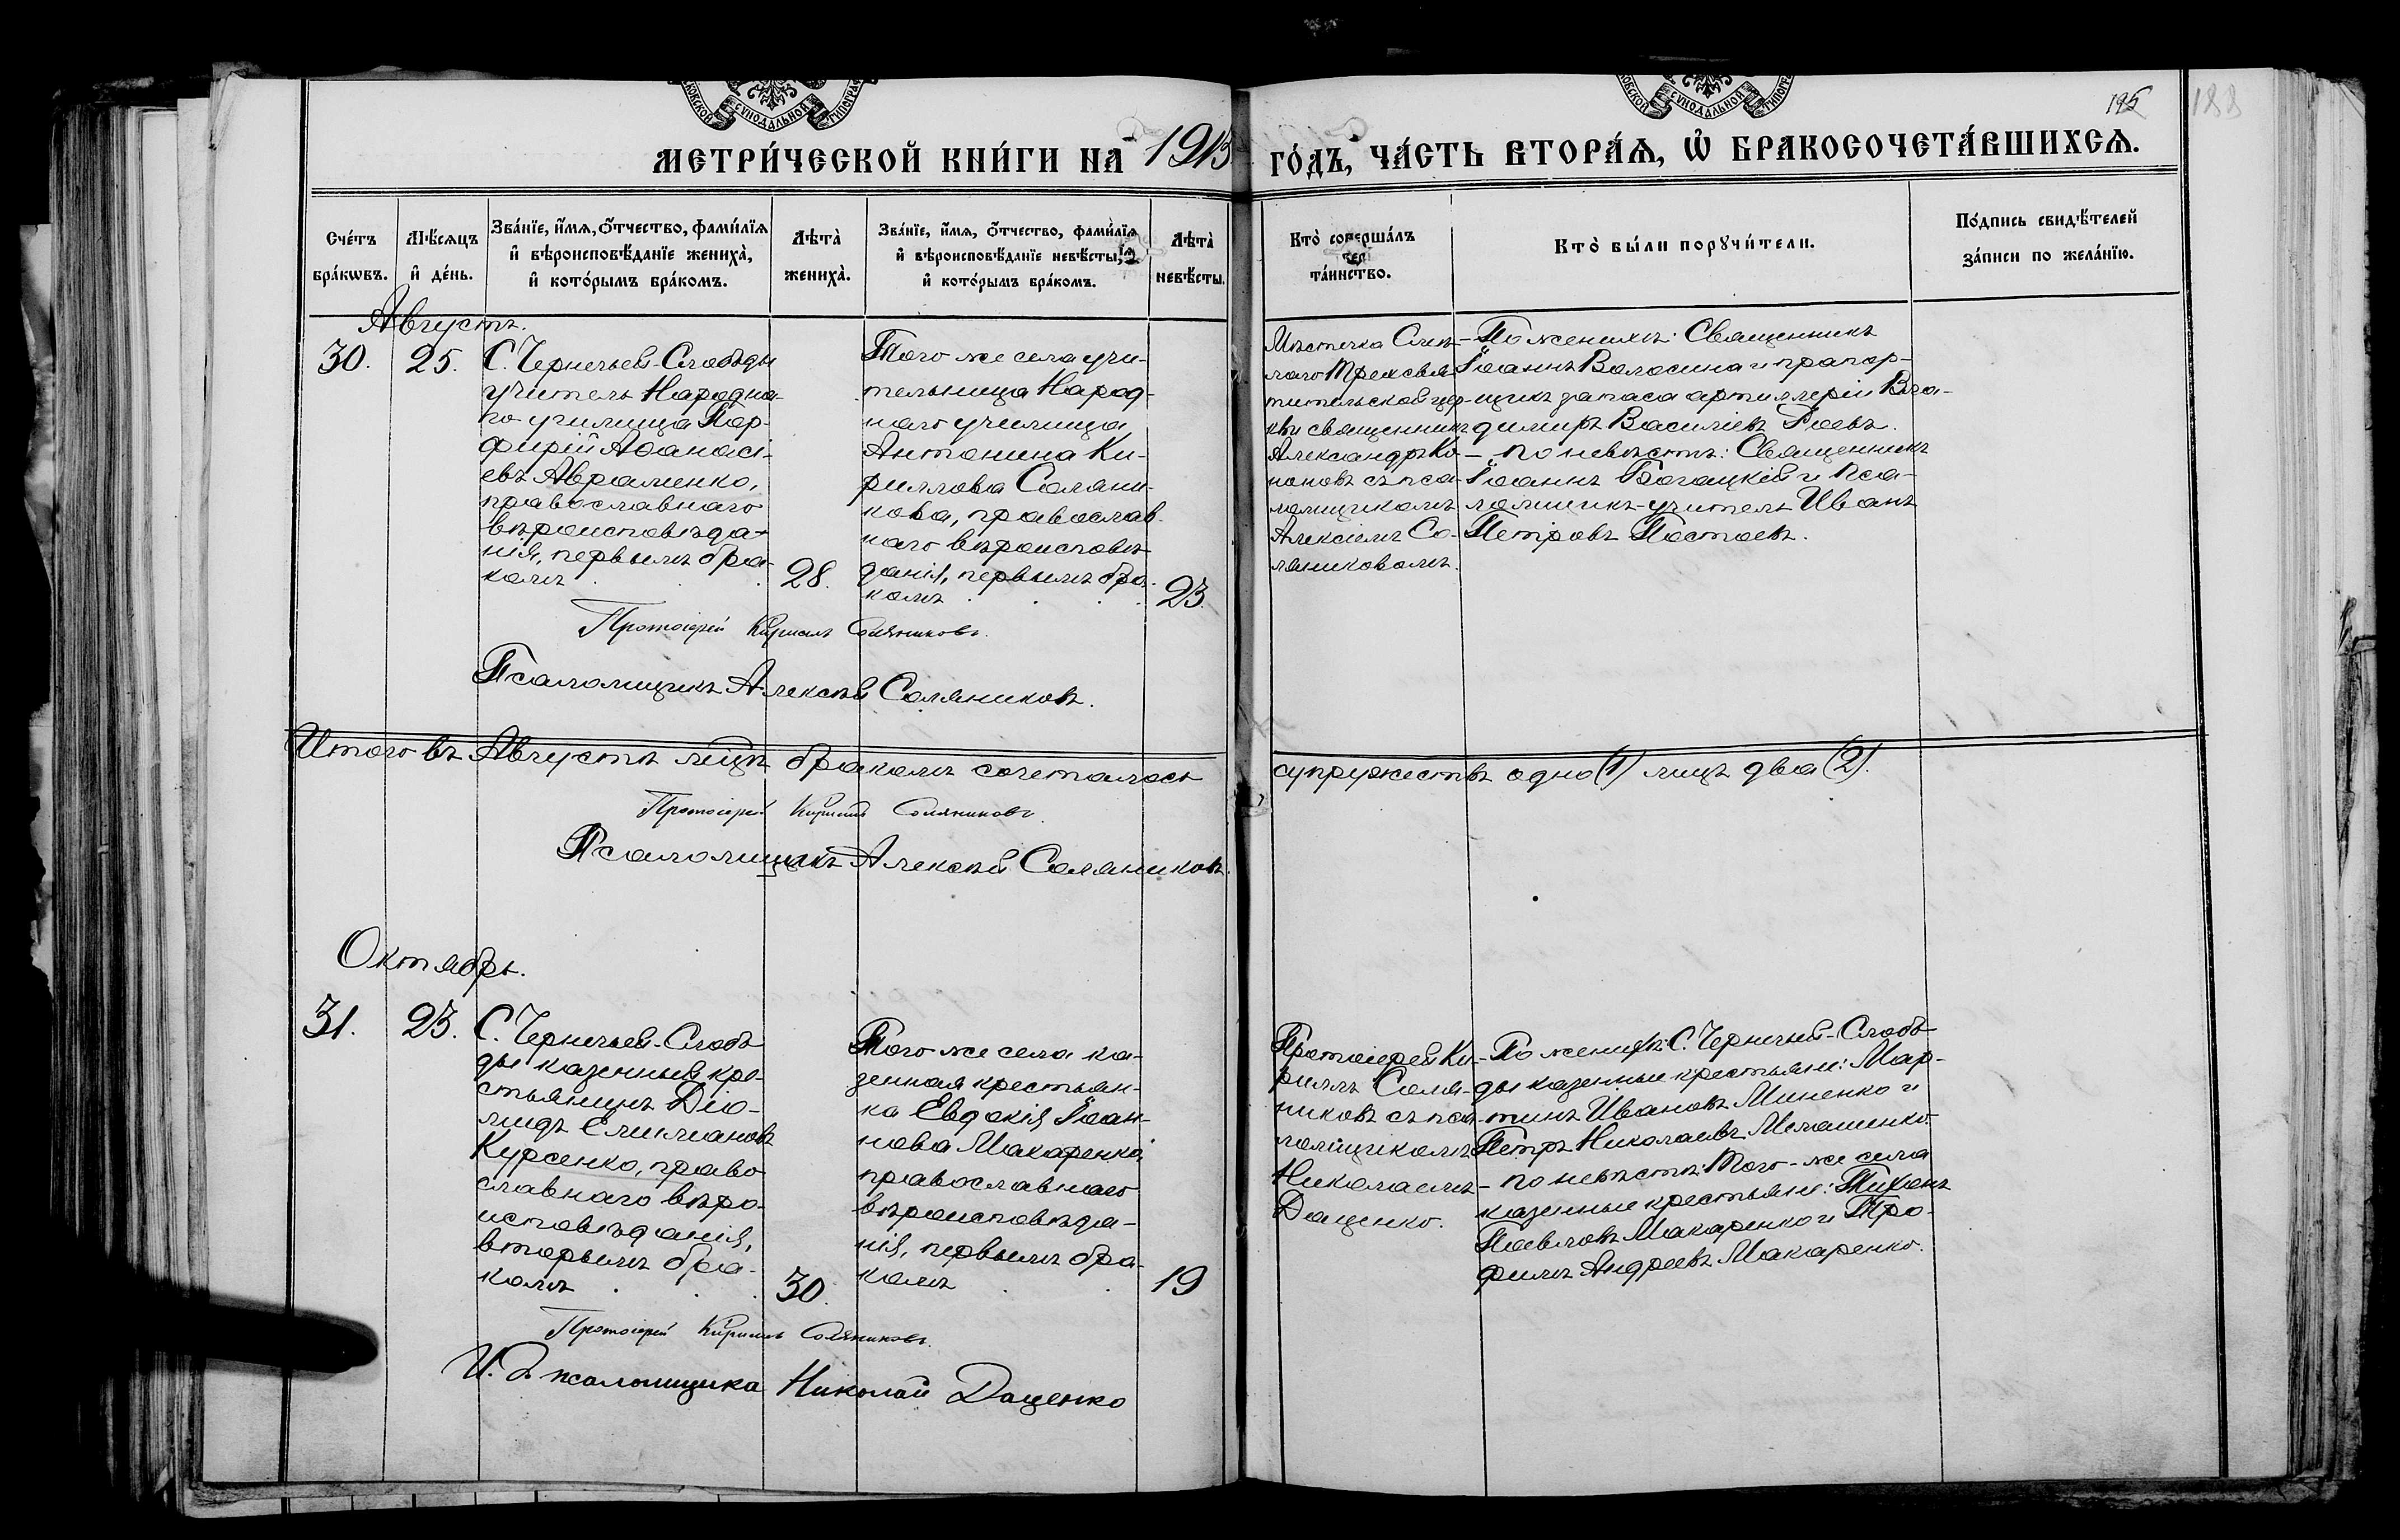 СѴНОДАЛЬНОЙ
СѴНОДАЛЬНОЙ
195
188
МЕТРИ́ЧЕСКОЙ КНИ́ГИ НА 1913
ГО́ДЪ, ЧА́СТЬ ВТОРА́Ѧ, Ѡ҆ БРАКОСОЧЕТА́ВШИХСѦ.
Сче́тъ
бра́кѡвъ.
Мѣ́сяцъ
и҆ де́нь.
Зва́нїе, и҆́мя, ѻ҆́тчество, фами́лїя
и҆ вѣроисповѣ́данїе жениха̀,
и҆ кото́рымъ бра́комъ.
Лѣ́та̀
жениха̀.
Зва́нїе, и҆́мя, ѻ҆́тчество, фами́лїя
и҆ вѣроисповѣ́данїе невѣ́сты,
и҆ кото́рымъ бра́комъ.
Лѣ́та̀
невѣ́сты.
Кто̀ соверша́лъ
та́инство.
Кто̀ бы́ли порꙋчи́тели.
По́дпись свидѣ́телей
за́писи по жела́нїю.
Августъ.
30.
25.
С. Чернечьей-Слободы
учитель Народна-
го училища Пор-
фирій Аѳанасі-
евъ Авраменко,
православнаго
вѣроисповѣда-
нія, первымъ бра-
комъ
28.
Того же села учи-
тельница Народ-
наго училища
Антонина Ки-
риллова Соляни-
кова, православ-
наго вѣроисповѣ-
данія, первымъ бра-
комъ
23.
Мѣстечка
Трехсвя-
тительской цер-
кви священникъ
Александръ Ко-
ноновъ съ пса-
ломщикомъ
Алексіемъ Со-
ляниковымъ.
– По женихѣ: Священникъ
Іоаннъ Волосина и прапор-
щикъ запаса артиллеріи Вла-
димиръ Василіевъ Гоевъ.
– по невѣстѣ: Священникъ
Іоаннъ Богацкій и Пса-
ломщикъ-учитель Иванъ
Петровъ Постоевъ.
Протоіерей Кириллъ Соляниковъ.
Псаломщикъ Алексѣй Соляниковъ.
Итого въ Августѣ мѣцѣ бракомъ сочеталось
супружествъ одно (1) лицъ два (2).
Протоіерей Кириллъ Соляниковъ.
Псаломщикъ Алексѣй Соляниковъ.
Октябрь.
31.
23.
С. Чернечьей-Слобо
ды казенный кре-
стьянинъ Діо-
мидъ Емиліановъ
Курсенко, право
славнаго вѣро-
исповѣданія,
вторымъ бра-
комъ
30.
Того же села ка-
зенная крестьян-
ка Евдокія Іоан-
нова Макаренко,
православнаго
вѣроисповѣда-
нія, первымъ бра-
комъ
19
Протоіерей Ки-
риллъ Соля-
никовъ съ пса-
ломщикомъ
Николаемъ
Даценко.
– По женихѣ: С. Чернечьей-Слобо
ды казенные крестьяне: Мар-
тинъ Ивановъ Миненко и
Петръ Николаевъ Мемашенко.
– по невѣстѣ: Того-же села
казенные крестьяне: Тихонъ
Павловъ Макаренко и Тро-
фимъ Андреевъ Макаренко.
Протоіерей Кириллъ Соляниковъ.
И. д. псаломщика Николай Даценко